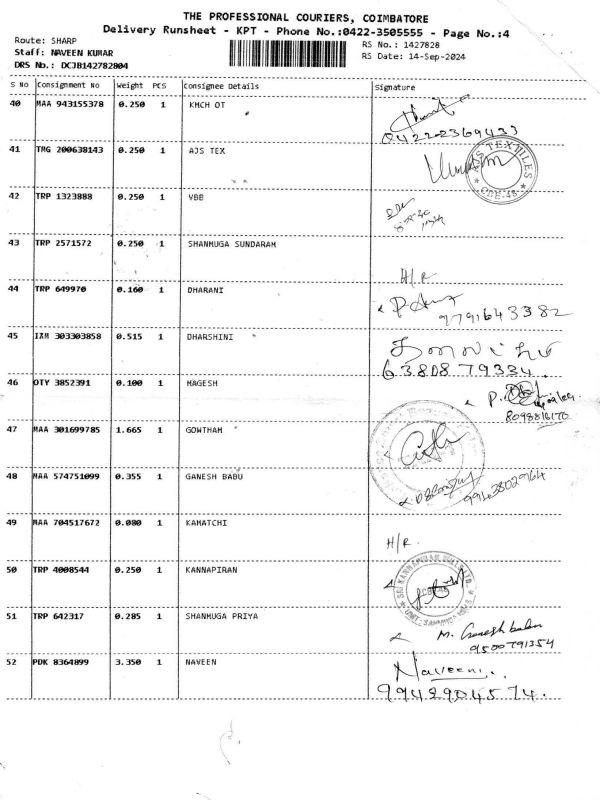 THE PROFESSIONAL COURIERS, COIMBATORE
Delivery Runsheet - KPT - Phone No.:0422-3505555 - Page No.:4
Route: SHARP
RS No.: 1427828
Staff: NAVEEN KUMAR
RS Date: 14-Sep-2024
DRS No.: DCJB142782804
S No Consignment No Weight PCS Consignee Details Signature
40 MAA 943155378 0.250 1 KMCH OT
0422-2369433
41 TMG 200638143 0.250 1 AJS TEX
AJS TEXTILES
CBE-48
42 TRP 1323888 0.250 1 VBB
43 TRP 2571572 0.250 1 SHANMUGA SUNDARAM
H/R
44 TRP 649970 0.160 1 DHARANI
9791643382
45 IXM 303303858 0.515 1 DHARSHINI
6380879334.
46 OTY 3852391 0.100 1 MAGESH
8098816170
47 MAA 301699785 1.665 1 GOWTHAM
48 MAA 574751099 0.355 1 GANESH BABU
9943802964
49 MAA 704517672 0.080 1 KAMATCHI
H/R.
50 TRP 4008544 0.250 1 KANNAPIRAN
51 TRP 642317 0.285 1 SHANMUGA PRIYA
M. Ganesh babu
9500791354
52 PDK 8364899 3.350 1 NAVEEN
Naveen.
9942904574.